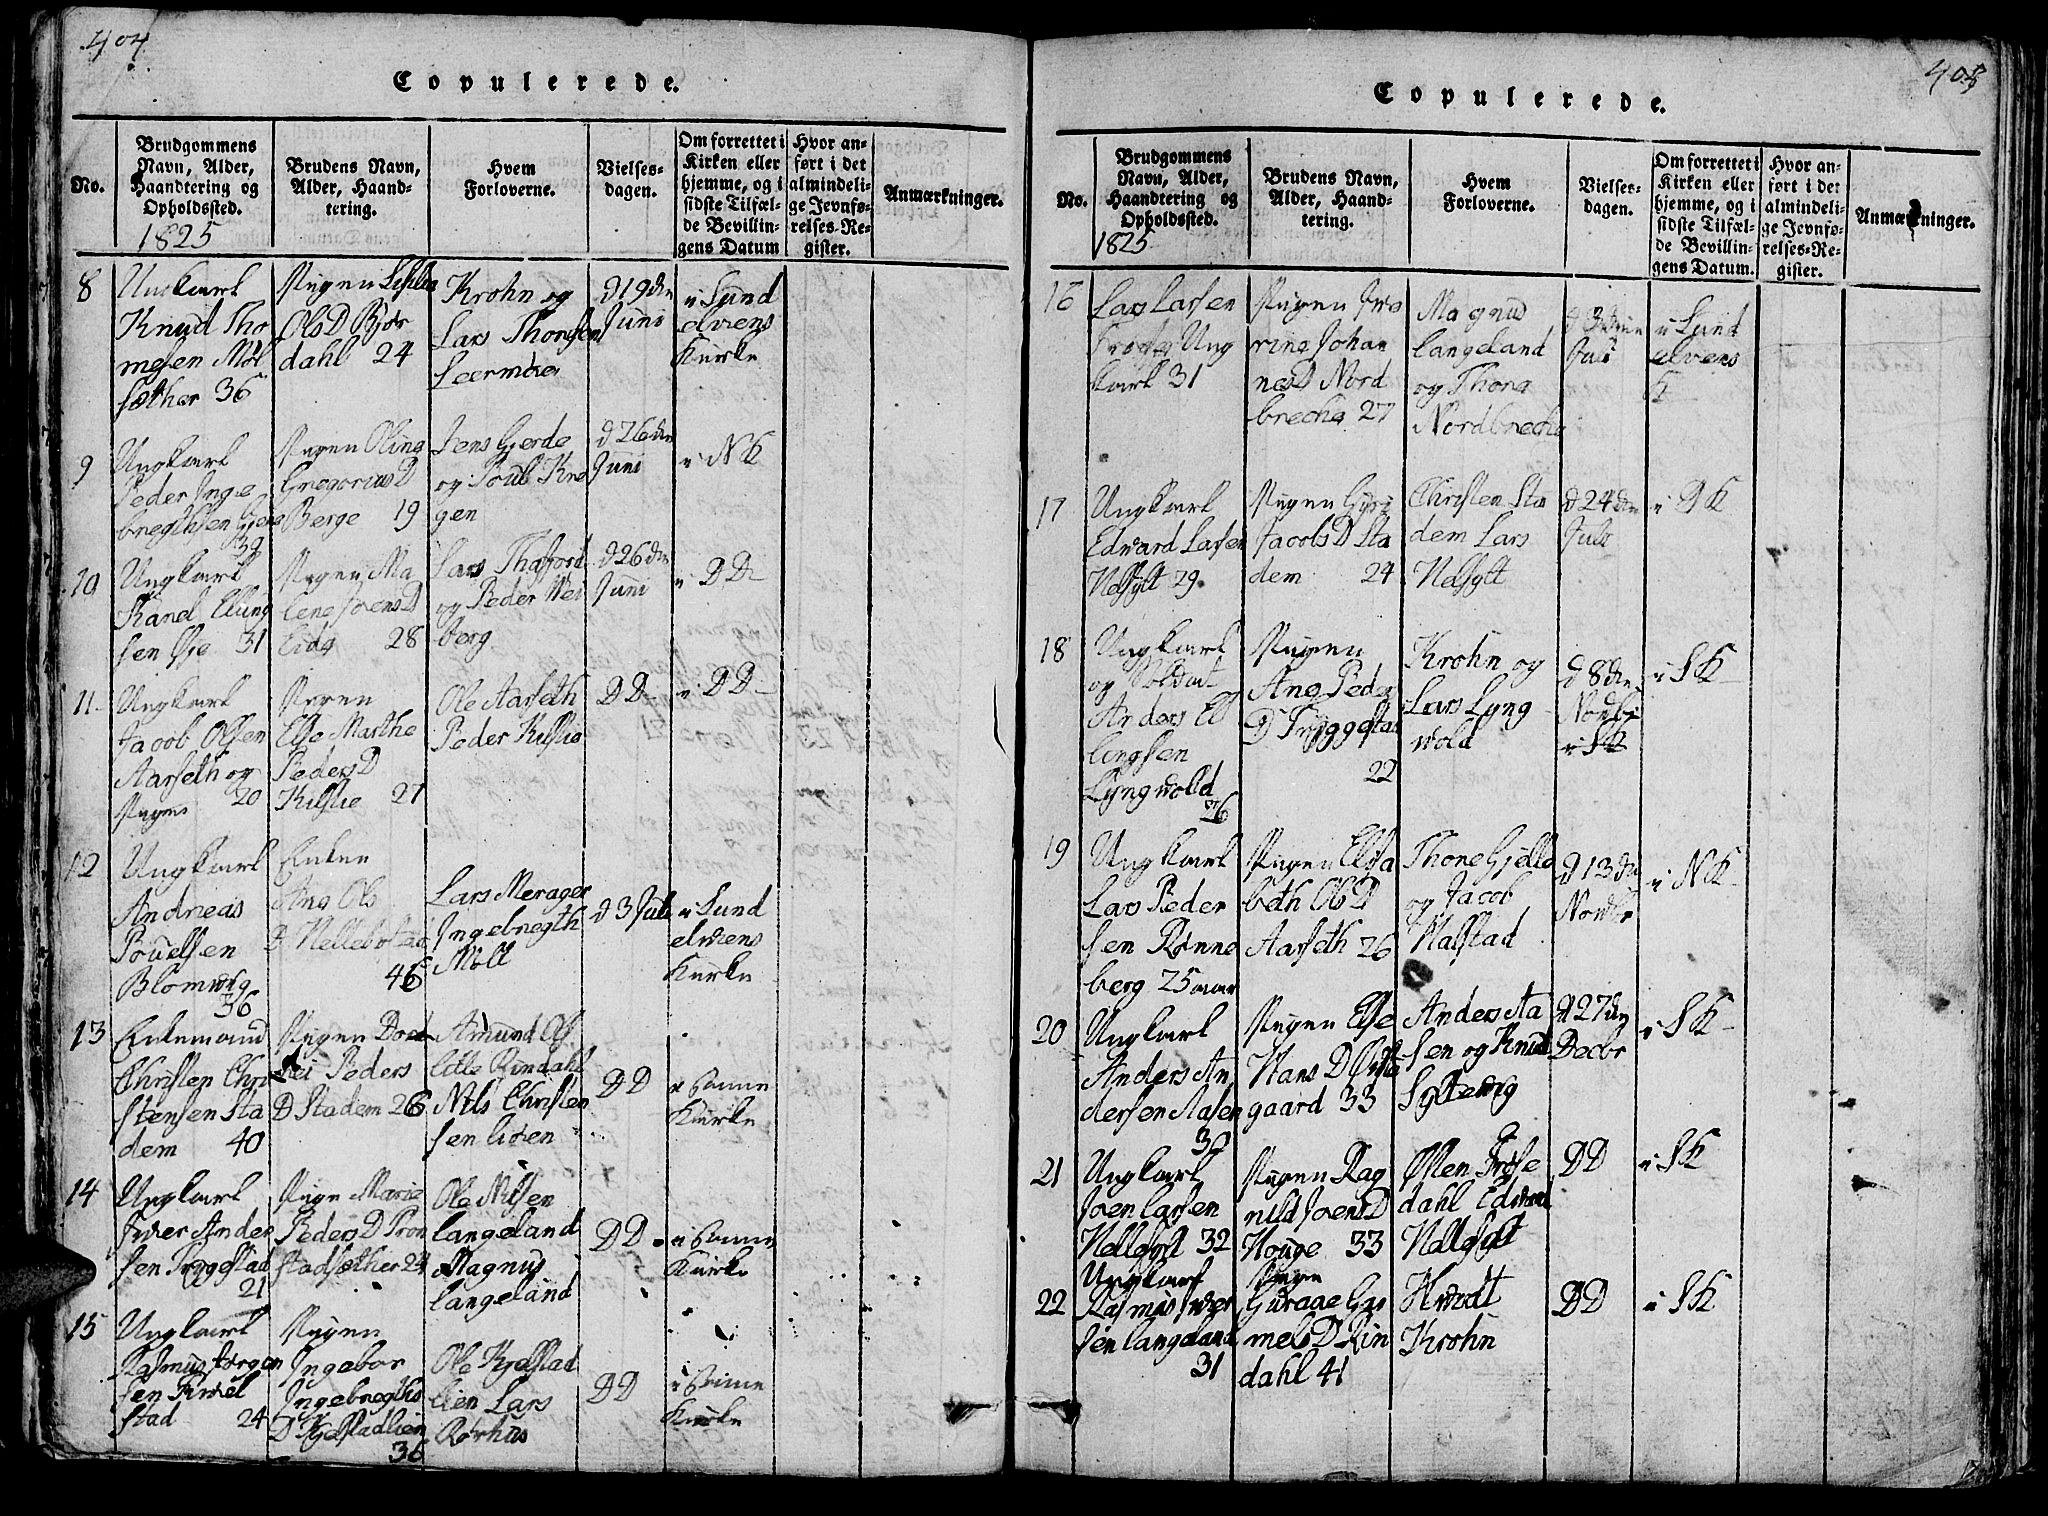 404
Copulerede.
No.
Brudgommens
Navn, Alder,
Haandtering og
Opholdssted.
1825
Brudens Navn,
Alder, Haand-
tering.
Hvem
Forloverne.
Vielses-
dagen.
Om forrettet i
Kirken eller
hjemme, og i
sidste Tilfæl-
de Bevillin-
gens Datum
Hvor an-
ført i det
almindeli-
ge Jevnfø-
relses-Re-
gister.
Anmærkninger.
8
Ungkarl
Knud Tho
mesen
sæther 36
Pigen
OlsD Bjør
dahl 24
Krohn og
Lars Thomsen
d 19 den
Juni
i Sund
elvens
Kirke
9
Ungkarl
Peder Inge
bregthsen
Pigen Oline
GregoriusD
Berge 19
Jens Gjerde
og Poul Kre
gen
d 26 den
Juni
i NK
10
Ungkarl
Karel Elling
sen Øie 31
Pigen Ma
lene JoensD
Eide 28
Lars
og Peder Wei
berg
d 26 den
Juni
i DD
11
Ungkarl
Jacob Olsen
Aarseth og
20
Pigen
Else Marthe
PedersD
Kilslie 21
Ole Aarseth
Peder Kilslie
DD
i DD
12
Ungkarl
Andreas
Pouelsen
Blomvig
36
Enken
Ane Ols
D
46
Lars Merager
Ingebregth
d 3 Juli
i Sund
elvens
Kirke
13
Enkemand
Christen Chri
stensen Sta
dem 40
Pigen
Peders
D Stadem 26
Amund Ol
Rindahl
Nils Christen
sen Lien
DD
i samme
Kirke
14
Ungkarl
Iver Ander
sen
21
Pige Marie
PedersD
stadsæther
Ole Nilsen
Langeland
Magnus
Langeland
DD
i samme
Kirke
15
Ungkarl
Rasmus Jørgen
sen
stad 24
Pigen
Ingebor
Ingebregths
D Kjelstadlien
36
Ole Kjelstad
lien Lars
Rørhus
DD
i samme
Kirke
405
Copulerede.
No.
Brudgommens
Navn, Alder,
Haandtering og
Opholdssted.
1825
Brudens Navn,
Alder, Haand-
tering.
Hvem
Forloverne.
Vielses-
dagen.
Om forrettet i
Kirken eller
hjemme, og i
sidste Tilfæl-
de Bevillin-
gens Datum.
Hvor an-
ført i det
almindeli-
ge Jevnfø-
relses-Re-
gister.
Anmærkninger.
16
Lars Larsen
Ung
karl 31
Pigen
Johan
nesD Nord
breche 27
Magnus
Langeland
og Thone
Nordbreche
d 3 den
Juli
i Sund
elvens
K
17
Ungkarl
Edvard Larsen
29
Pigen
JacobsD Sta
dem 24
Christen Sta
dem Lars
d 24 den
Juli
i DK
18
Ungkarl
og Soldat
Anders El
lingsen
Lyngvold
26
Pigen
Ane Peder
D Tryggestad
22
Krohn og
Lars Lyng
vold
d 8 den
Novbr
i SK
i SK
19
Ungkarl
Lars Peder
sen Rønne
berg 25 aar
Pigen Elisa
beth OlsD
Aarseth 26
Thone Gjelle
og Jacob
Halstad
d 13 den
Novbr
i NK
20
Ungkarl
Anders An
dersen Aasen
Pigen Else
HansD
gaard 33
Anders Aa
sen og Knud
Syltevig
d 27 den
Decbr
i SK
21
Ungkarl
Joen Larsen
32
Pigen Rag
nild JoensD
Houge 33
Østen
dahl Edvard
DD
i SK
22
Ungkarl
Rasmus Iver
sen Langeland
31
Pigen
Guraae Gar
melsD Rin
dahl 41
Hrodt
Krohn
DD
i SK